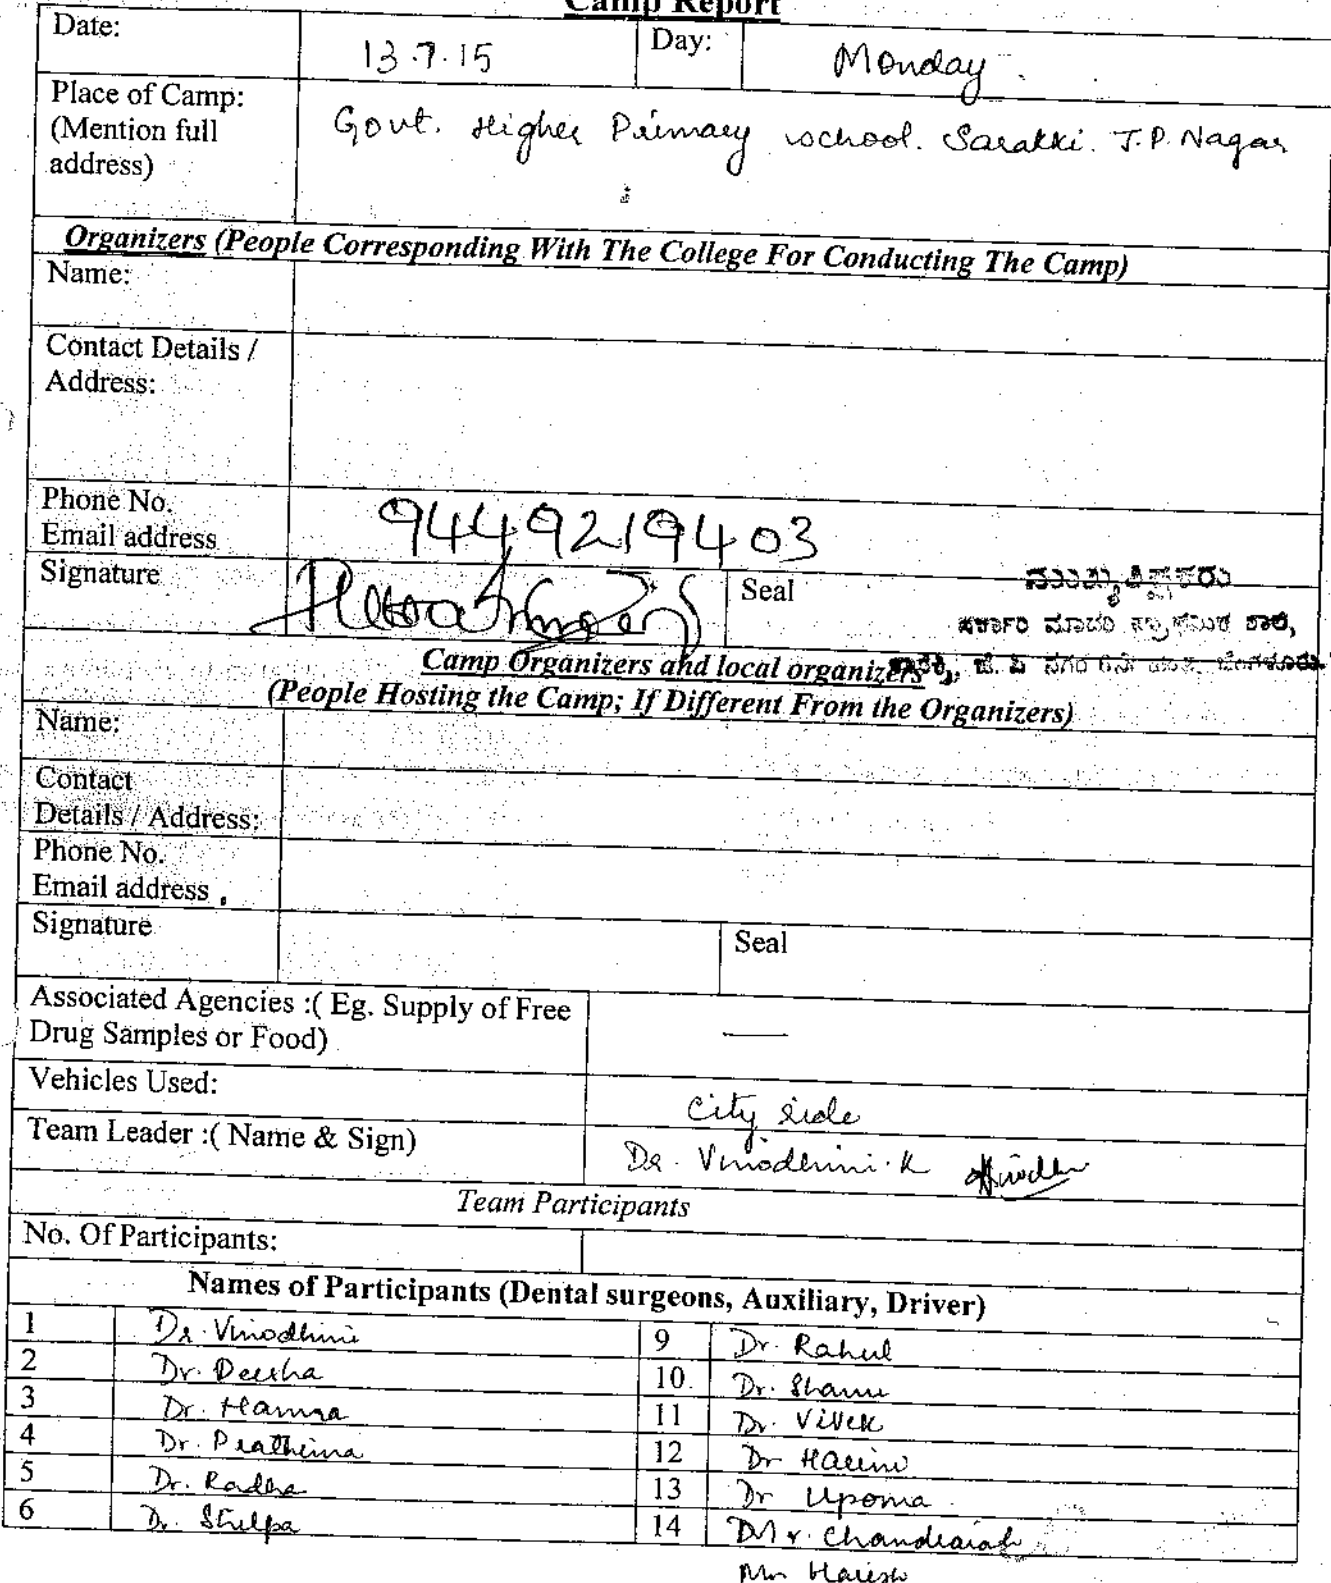 Camp Report
Date: 13.7.15 Day: Monday
Place of Camp: Govt. Higher Primary school. Sarakki. J.P. Nagar
(Mention full
address)
Organizers (People Corresponding With The College For Conducting The Camp)
Name:
Contact Details /
Address:
Phone No. 9449219403
Email address
Signature Seal
ಮುಖ್ಯ ಶಿಕ್ಷಕರು
ಸರ್ಕಾರಿ ಮಾದರಿ ಶಾಲೆ,
ಜೆ. ಪಿ ನಗರ ಬೆಂಗಳೂರು.
Camp Organizers and local organizers
(People Hosting the Camp; If Different From the Organizers)
Name:
Contact
Details / Address:
Phone No.
Email address
Signature Seal
Associated Agencies :( Eg. Supply of Free
Drug Samples or Food) —
Vehicles Used: City ride
Team Leader :( Name & Sign) Dr. Vinodhini. K
Team Participants
No. Of Participants:
Names of Participants (Dental surgeons, Auxiliary, Driver)
1 Dr. Vinodhini 9 Dr. Rahul
2 Dr. Deesha 10. Dr. Shanu
3 Dr. Hamza 11 Dr. Vivek
4 Dr. Prathima 12 Dr Harini
5 Dr. Radha 13 Dr Upoma
6 Dr. Shilpa 14 Mr. Chandraiah
Mr Harish